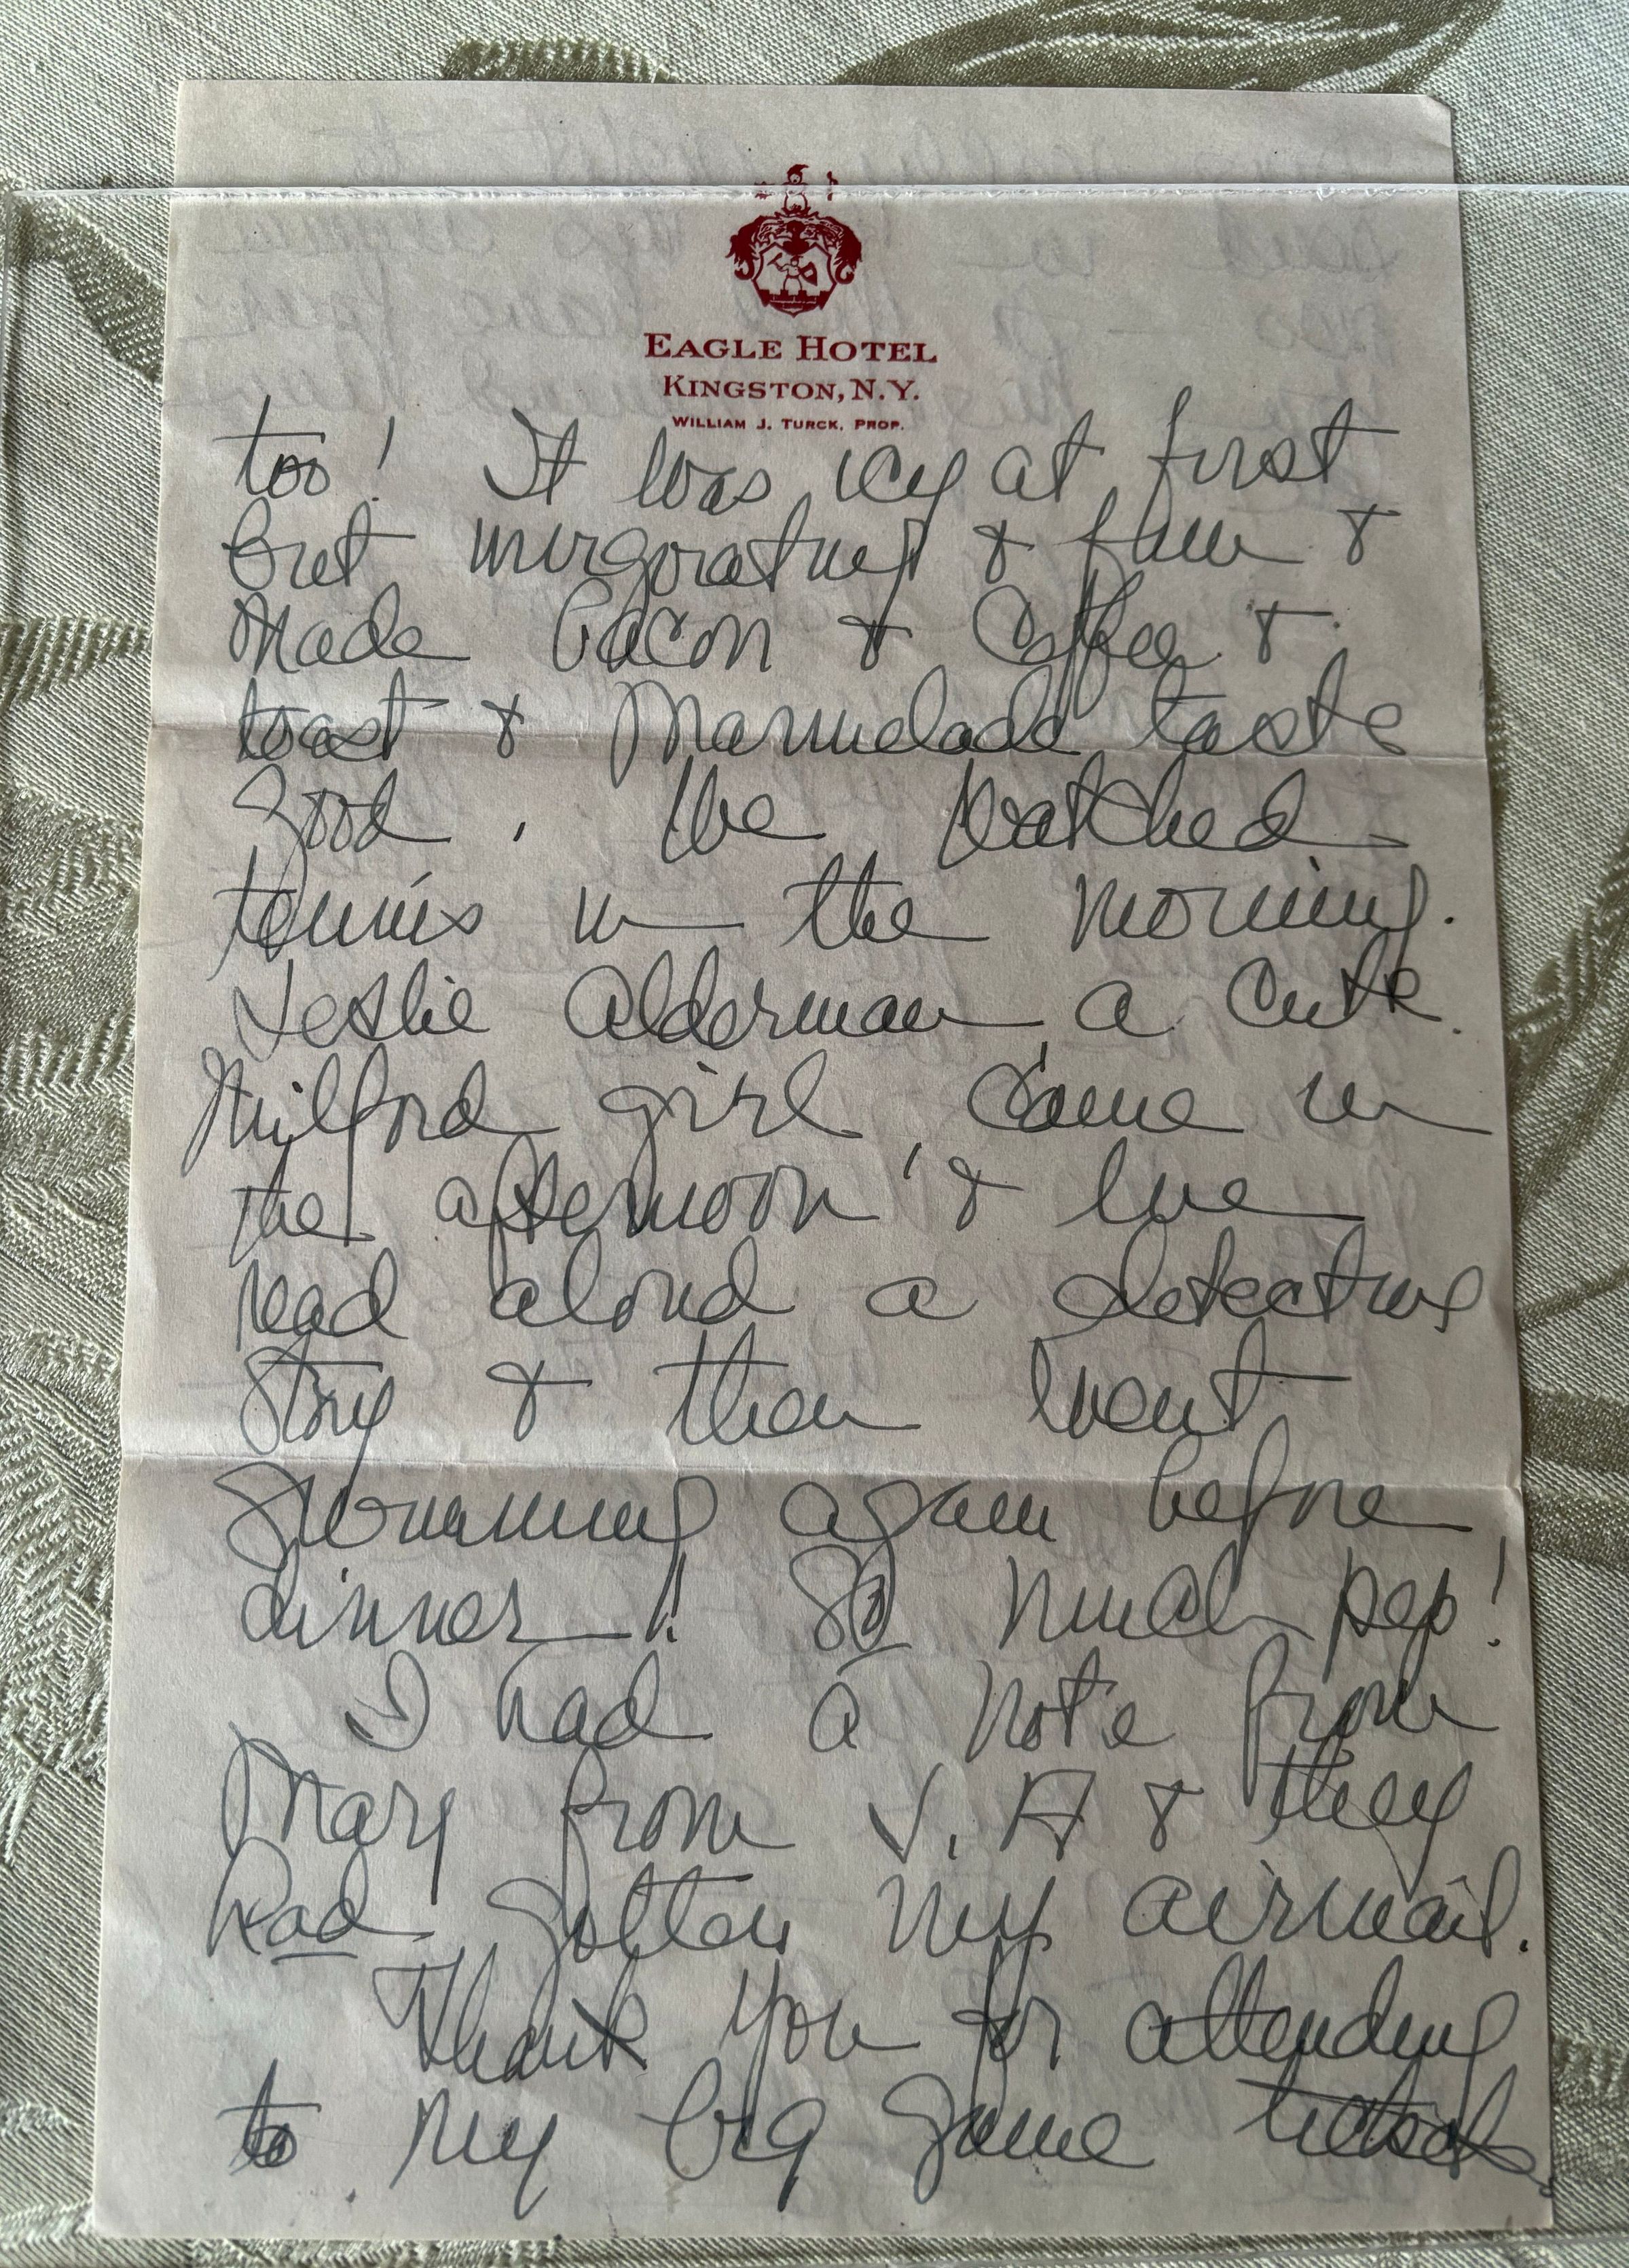 EAGLE HOTEL
KINGSTON, N.Y.
WILLIAM J. TURCK, PROP.
too! It was icy at first
but invigorating & fun &
made bacon & coffee &
toast & marmelade taste
good. We watched
tennis in the morning.
Leslie Alderman, a cute
Milford girl, came in
the afternoon & we
read aloud a detective
story & then went
swimming again before
dinner! So much pep!
I had a note from
Mary from S. A & they
had gotten my airmail.
Thank you for attending
to my big game tickets.